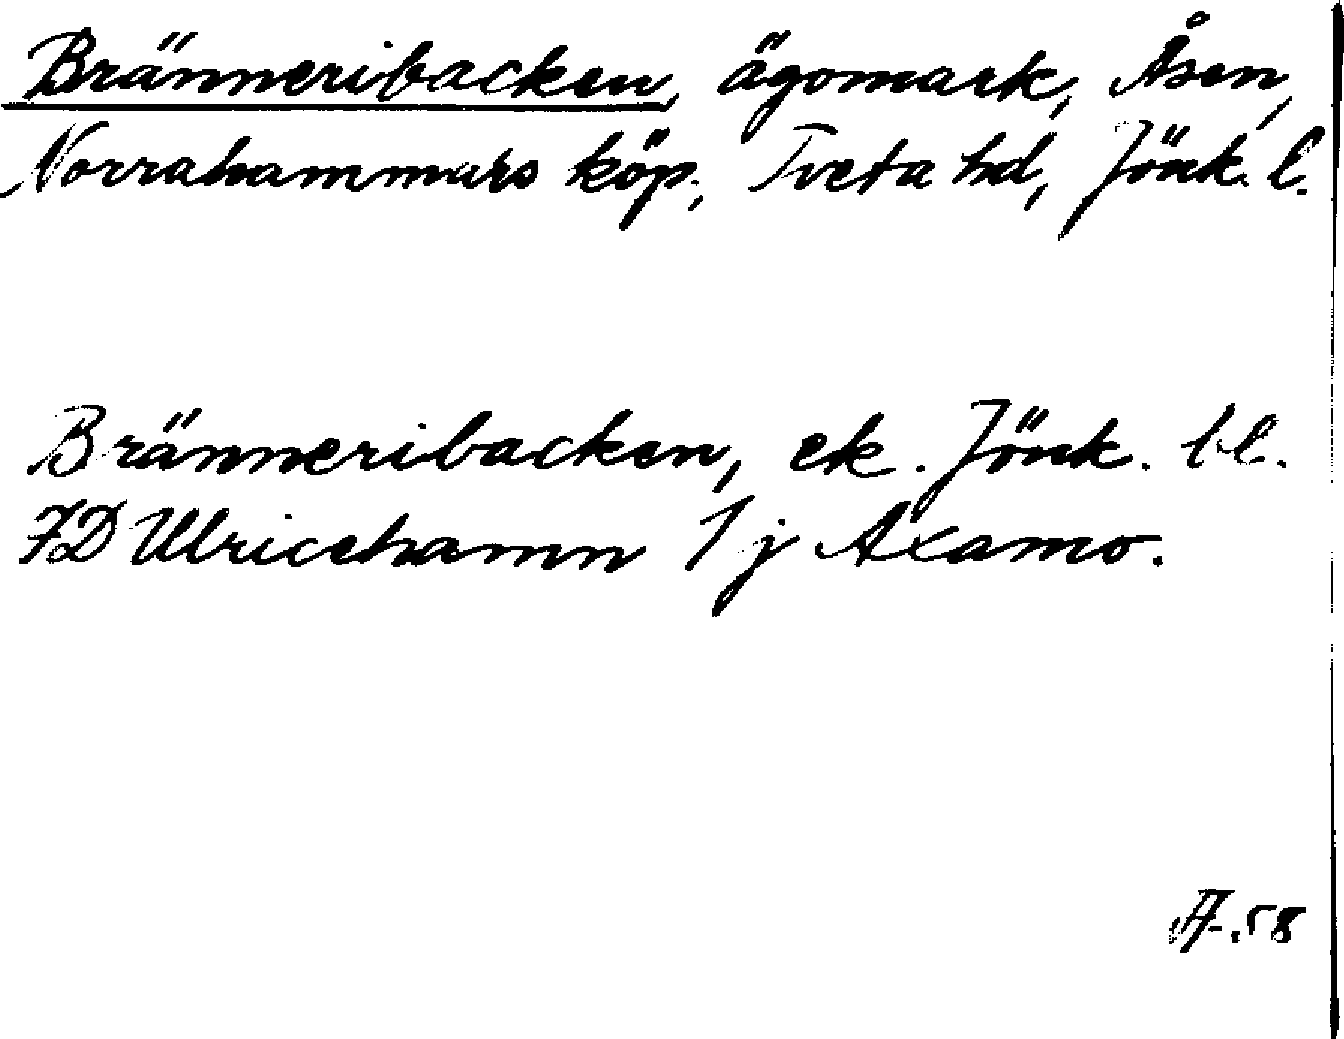 Bränneribacken, ägomark, Åsen,
Norrahammars köp., Tveta hd, Jönk. l.
Bränneribacken, ek. Jönk. bl.
7D Ulricehamn 1 j Axamo.
A.58